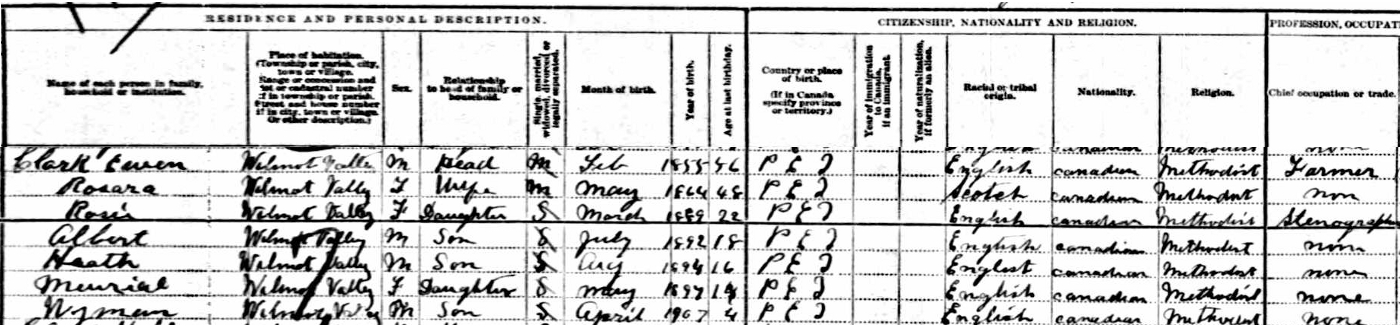 RESIDENCE AND PERSONAL DESCRIPTION. CITIZENSHIP, NATIONALITY AND RELIGION. PROFESSION, OCCUPAT
Name of each person in family, household or institution.
Place of habitation. (Township or parish, city, town or village. Range or concession and lot or cadastral number if in township or parish. Street and house number if in city, town or village. Or other description.)
Sex.
Relationship to head of family or household.
Single, married, widowed, divorced or legally separated.
Month of birth.
Year of birth.
Age at last birthday.
Country or place of birth. (If in Canada specify province or territory.)
Year of immigration to Canada, if an immigrant.
Year of naturalization, if formerly an alien.
Racial or tribal origin.
Nationality.
Religion.
Chief occupation or trade.
Clark Ewen Wilmot Valley M Head M Feb 1855 56 P E I English canadian Methodist Farmer
Rosara Wilmot Valley F Wife M May 1864 48 P E I Scotch canadian Methodist non
Rosie Wilmot Valley F Daughter S March 1889 22 P E I English canadian Methodist Stenograph
Albert Wilmot Valley M Son S July 1892 18 P E I English canadian Methodist none
Heath Wilmot Valley M Son S Aug 1894 16 P E I English canadian Methodist none
Meurial Wilmot Valley F Daughter S May 1897 14 P E I English canadian Methodist none
Wyman Wilmot Valley M Son S April 1907 4 P E I English canadian Methodist none